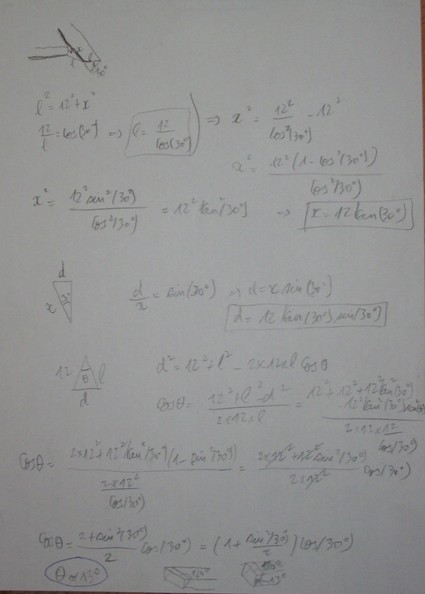 l² = 12² + x²
12/l = cos(30°) ⇒ l = 12/cos(30°) ⇒ x² = 12²/cos²(30°) - 12²
x² = 12²(1 - cos²(30°))/cos²(30°)
x² = 12² sin²(30°)/cos²(30°) = 12² tan²(30°) ⇒ x = 12 tan(30°)
d
x 30°
d/x = sin(30°) ⇒ d = x sin(30°)
d = 12 tan(30°) sin(30°)
12 θ l
d
d² = 12² + l² - 2×12×l cos θ
cos θ = (12² + l² - d²)/(2×12×l) =
cos θ = (2×12² + 12² tan²(30°)(1 - sin²(30°)))/(2×12²/cos(30°)) = (2×12² + 12² sin²(30°))/(2×12²) cos(30°)
cos θ = (2 + sin²(30°))/2 cos(30°) = (1 + sin²(30°)/2) cos(30°)
θ ≈ 13°